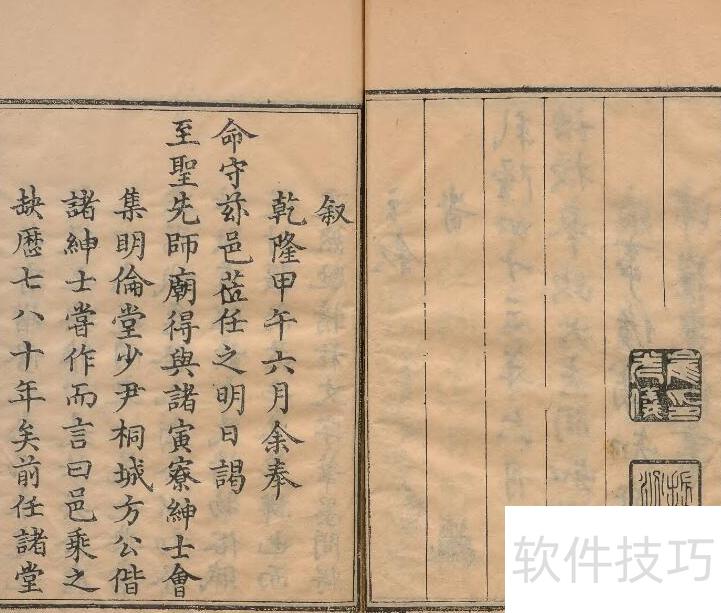 叙
乾隆甲午六月余奉
命守兹邑莅任之明日謁
至聖先師廟得與諸寅寮紳士會
集明倫堂少尹桐城方公偕
諸紳士嘗作而言曰邑乘之
缺歷七八十年矣前任諸堂
软件技巧